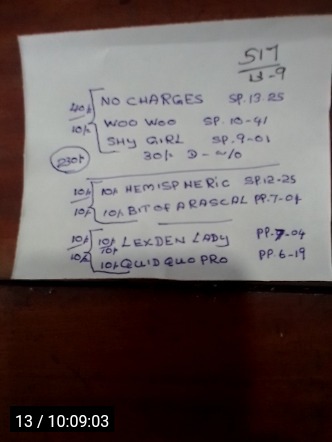 S17
13-9
40/- NO CHARGES SP.13.25
10/- WOO WOO SP.10-41
SHY GIRL SP.9-01
230/- 30/- D-
10/- 10/- HEMISPHERIC SP.12-25
10/- 10/- BIT OF A RASCAL PP.7-04
10/- 10/- LEXDEN LADY PP.7-04
10/-
10/- 10/- QUID QUO PRO PP.6-19
13 / 10:09:03